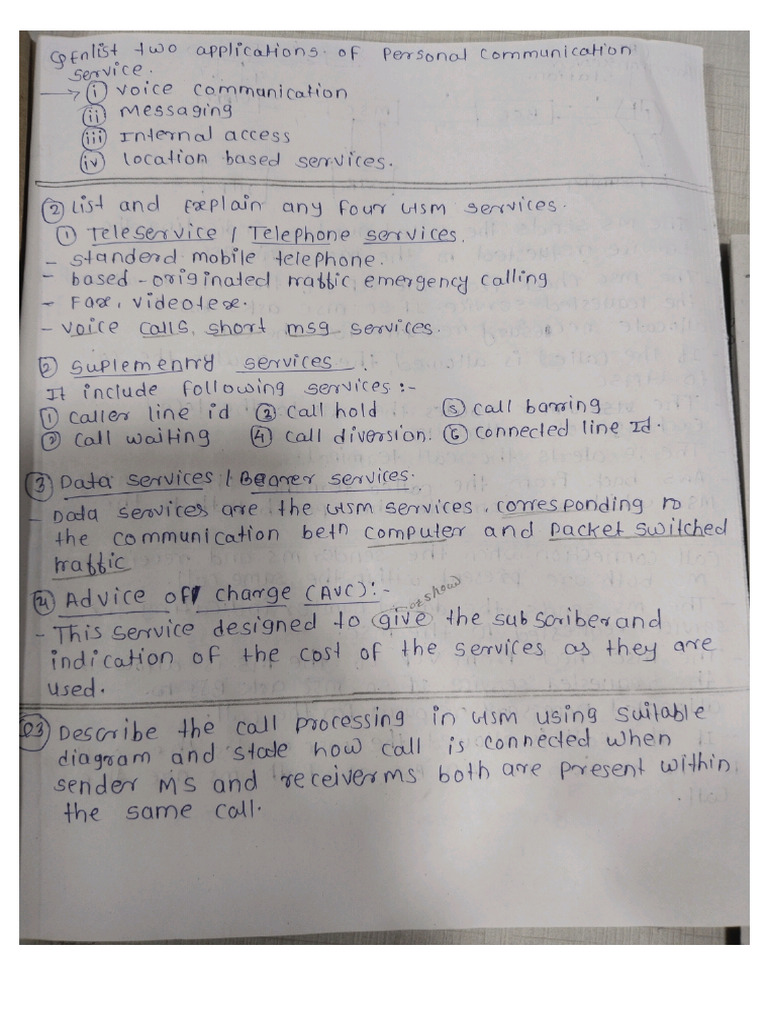 Q1 Enlist two applications of personal communication
service.
→ (i) voice communication
(ii) messaging
(iii) Internal access
(iv) location based services.
(2) List and Explain any four GSM services.
(1) Teleservice / Telephone services.
- standerd mobile telephone.
- based-originated traffic, emergency calling
- Fax, videotex.
- voice calls, short msg services.
(2) suplementry services.
It include following services :-
(1) caller line id (3) call hold (5) call barring
(2) call waiting (4) call diversion. (6) connected line Id.
(3) Data services / Bearer services.
- Data services are the GSM services, corresponding to
the communication betn computer and packet switched
traffic
(4) Advice of charge (AVC):-
or show
- This service designed to give the subscriber and
indication of the cost of the services as they are
used.
Q3 Describe the call processing in GSM using suitable
diagram and state how call is connected when
sender MS and receiver ms both are present within
the same call.